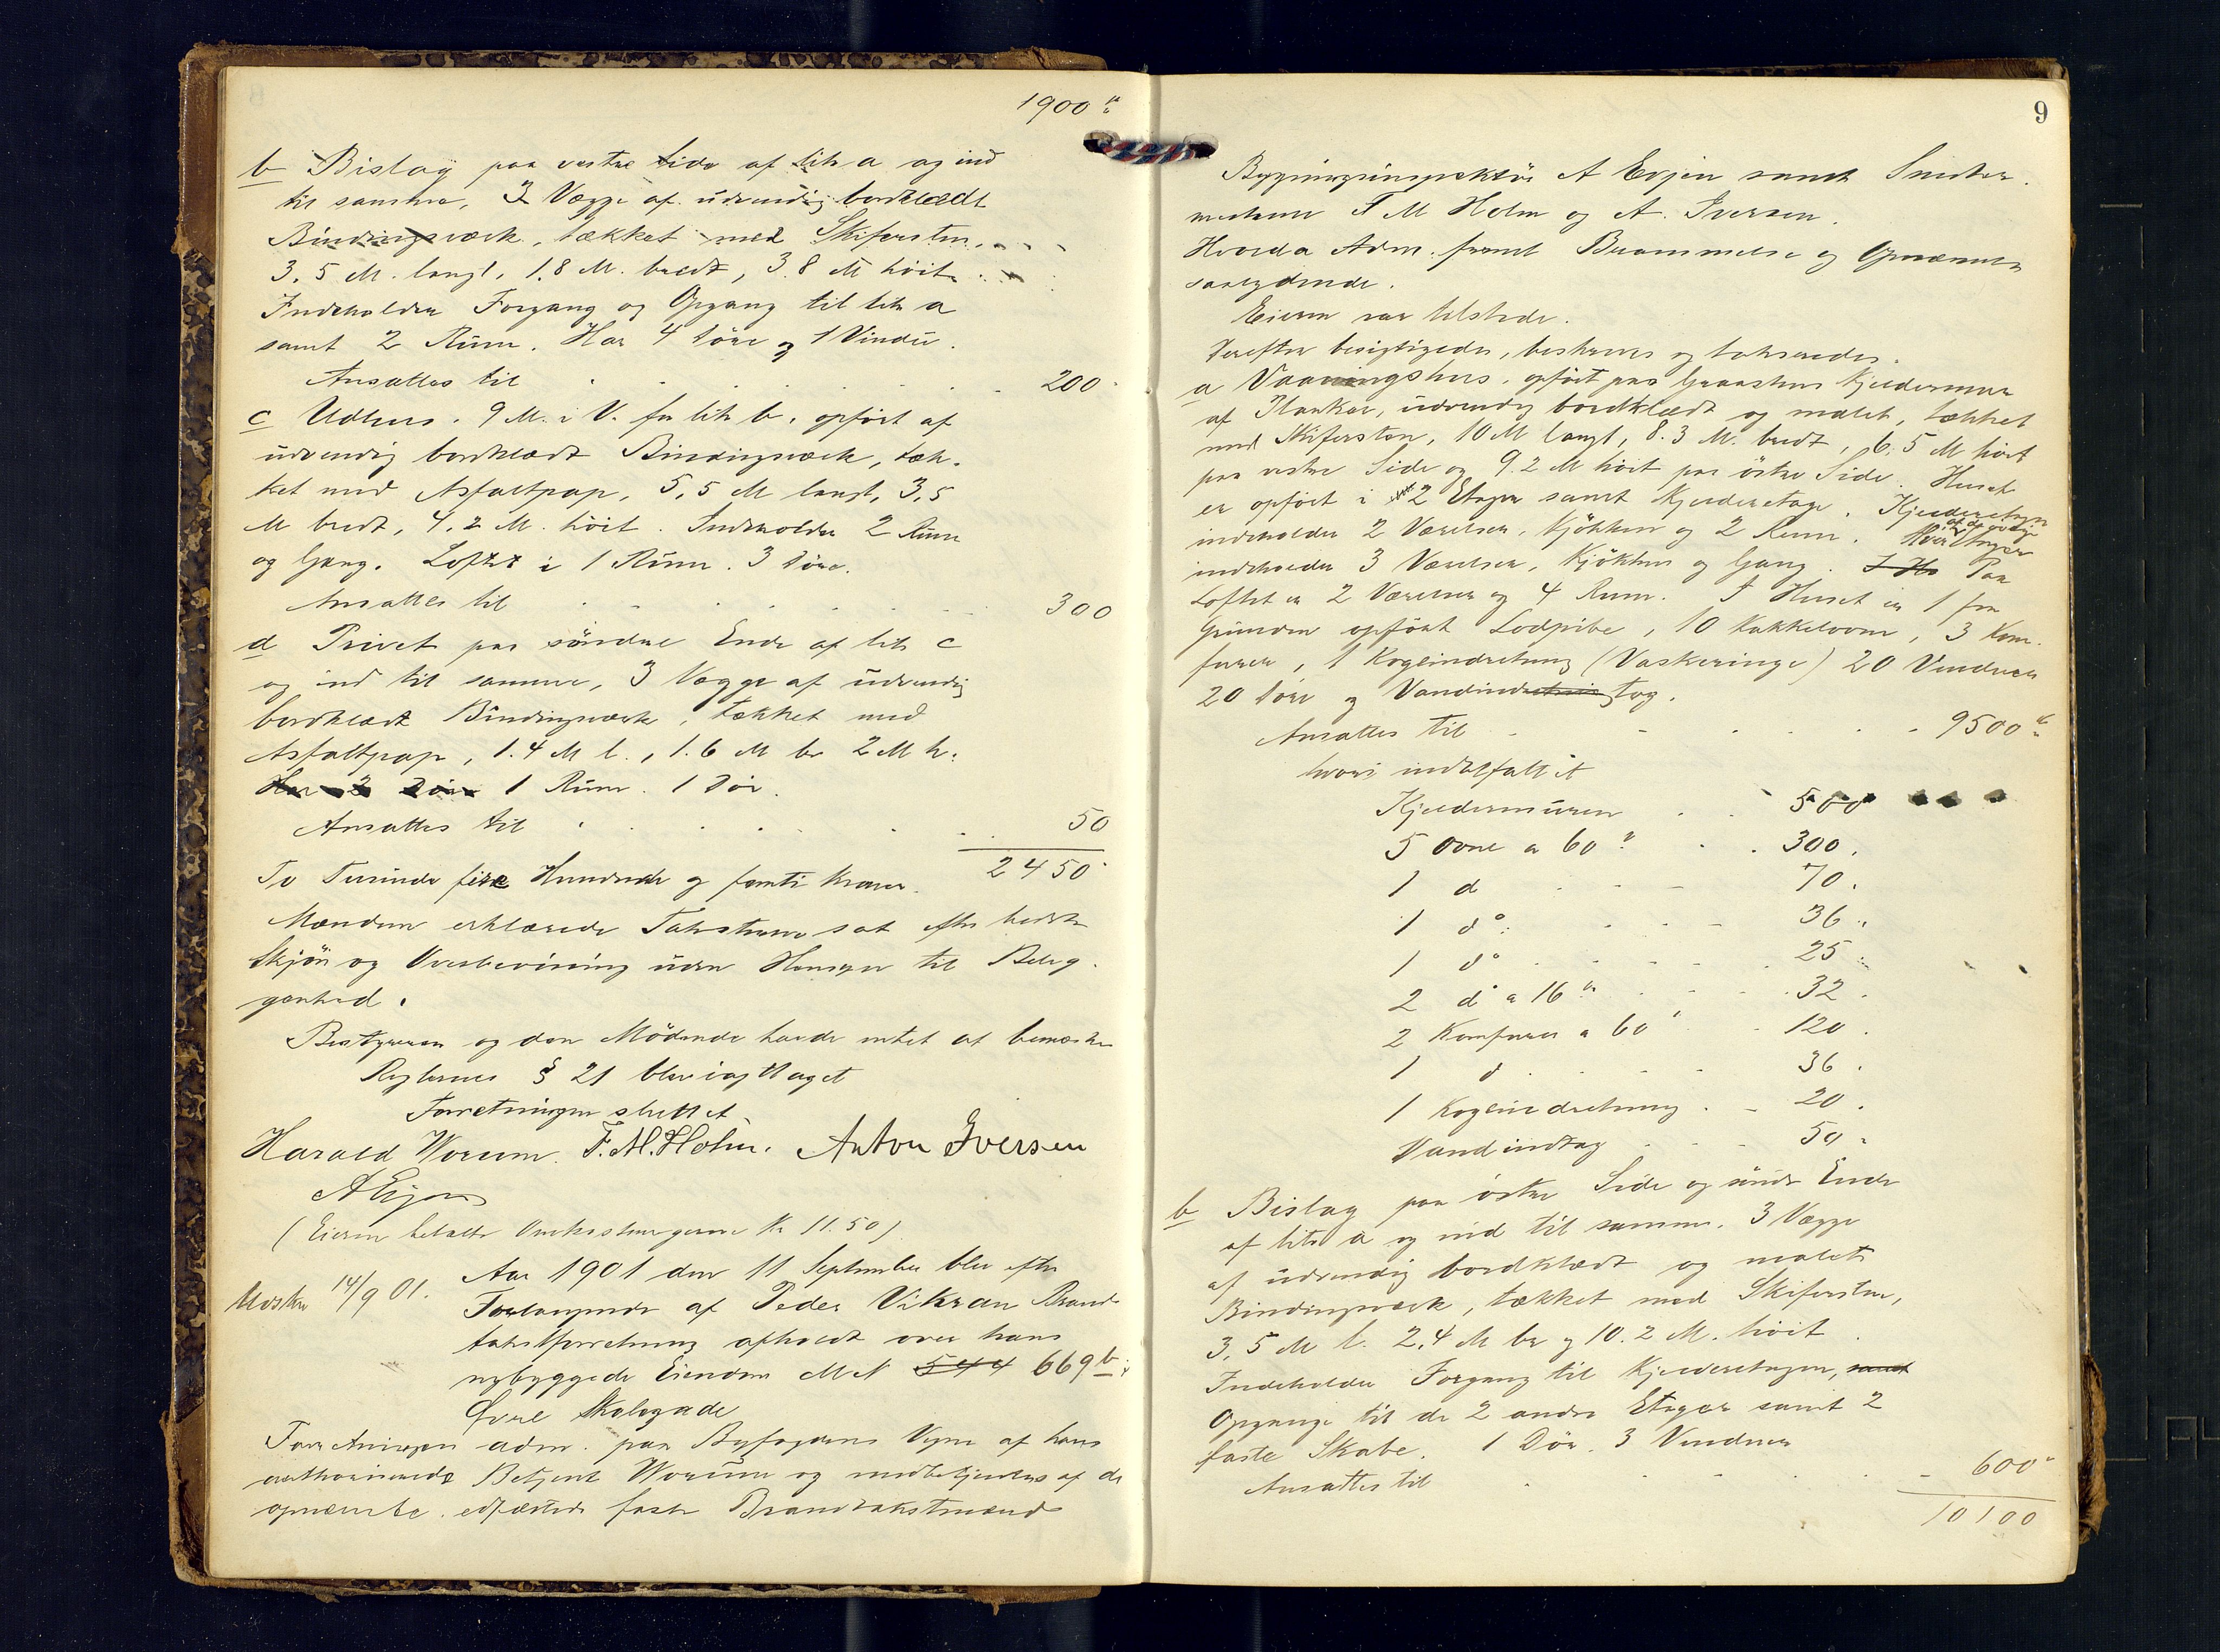 1900 kr
b Bislag paa vestre Side af litr a og ind
til samme, 3 Vægge af udvendig bordklædt
Bindingsværk, tækket med Skifersten,
3,5 M. langt, 1.8 M. bredt, 3.8 M höit.
Indeholder Forgang og Opgang til litr a
samt 2 Rum. Har 4 Döre og 1 Vindu.
Ansattes til 200
c Udhus. 9 M. i V. for litr b. opfört af
udvendig bordklædt Bindingsværk, tæk-
ket med Asfaltpap, 5,5 M langt, 3,5
M bredt, 4,2 M. höit. Indeholder 2 Rum
og Gang. Loftet i 1 Rum. 3 Döre.
Ansattes til 300
d Privet paa söndre Ende af litr c
og ind til samme, 3 Vægge af udvendig
bordklædt Bindingsværk, tækket med
Asfaltpap, 1.4 M l., 1.6 M br 2 M h.
Har 2 Döre 1 Rum. 1 Dör.
Ansattes til 50
To Tusinde fire Hundrede og femti Kroner. 2450
Mændene erklærede Taksterne sat efter bedste
Skjön og Overbevisning uden Hensyn til Belig-
genhed.
Bestyreren og den Mödende havde intet at bemærke
Reglernes § 21 blev iagttaget
Forretningen sluttet
Harald Worum. F. M. Holm. Anton Iversen
A Evjen
(Eieren betalte Omkostningerne Kr 11.50)
Udskr 14/9 01.
Aar 1901 den 11 September blev efter
Forlangende af Peder Vikran Brand-
takstforretning afholdt over hans
nybyggede Eiendom MN 544 669 b
Övre Skolegade
Forretningen adm. paa Byfogdens Vegne af hans
authoriserede Betjent Worum og medbetjentes af de
opnævnte edfæstede faste Brandtakstmænd
9
Bygningsinspektör A Evjen samt Snedker-
mestrene F M Holm og A. Iversen.
Hvorda Adm. fremlagde Berammelse og Opnævnelse
saalydende.
Eieren var tilstede.
Derefter besigtigedes, beskreves og takseredes.
a Vaaningshus, opfört paa Graastens Kjeldermur
af Planker, udvendig bordklædt og malet, tækket
med Skifersten, 10 M langt, 8.3 M. bredt, 6.5 M höit
paa vestre Side og 9.2 M höit paa östre Side. Huset
er opfört i 2 Etager samt Kjelderetage. Kjelderetagen
indeholder 2 Værelser, Kjökken og 2 Rum. Hver af de övrige Etager
indeholder 3 Værelser, Kjökken og Gang. I Hu Paa
Loftet er 2 Værelser og 4 Rum. I Huset er 1 fra
Grunden opfört Lodpibe, 10 Kakkelovne, 3 Kom-
furer, 1 Kogeindretning (Vaskeringe) 20 Vinduer
20 Döre og Vandindretning tag.
Ansattes til 9500 kr
hvori indbefattet
Kjeldermuren 500
5 Ovne a 60 kr 300.
1 d 70.
1 do 36.
1 do 25.
2 do a 16 kr 32.
2 Komfurer a 60 120.
1 d 36.
1 Kogeindretning 20.
Vandindtag 50.
b Bislag paa östre Side og söndr Ende
af litr a og ind til samme. 3 Vægge
af udvendig bordklædt og malet
Bindingsværk, tækket med Skifersten,
3,5 M l. 2.4 M br og 10.2 M. höit.
Indeholder Forgang til Kjelderetagen, samt
Opgange til de 2 andre Etager samt 2
faste Skabe. 1 Dör. 3 Vinduer
Ansattes til 600
10100